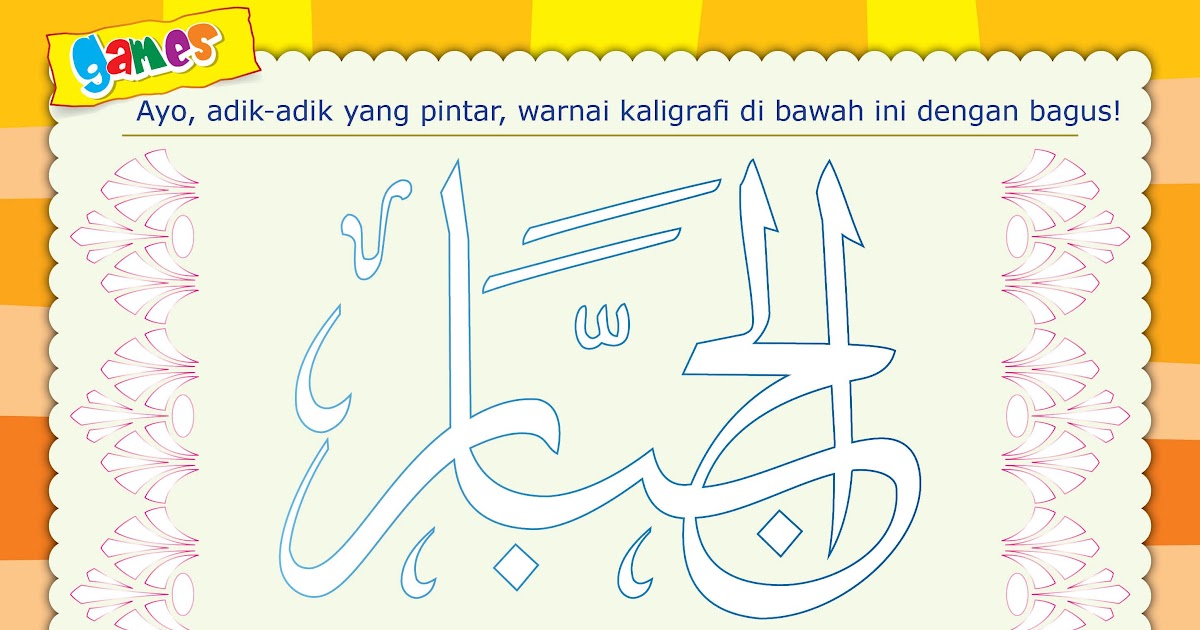 games
Ayo, adik-adik yang pintar, warnai kaligrafi di bawah ini dengan bagus!
الجبار